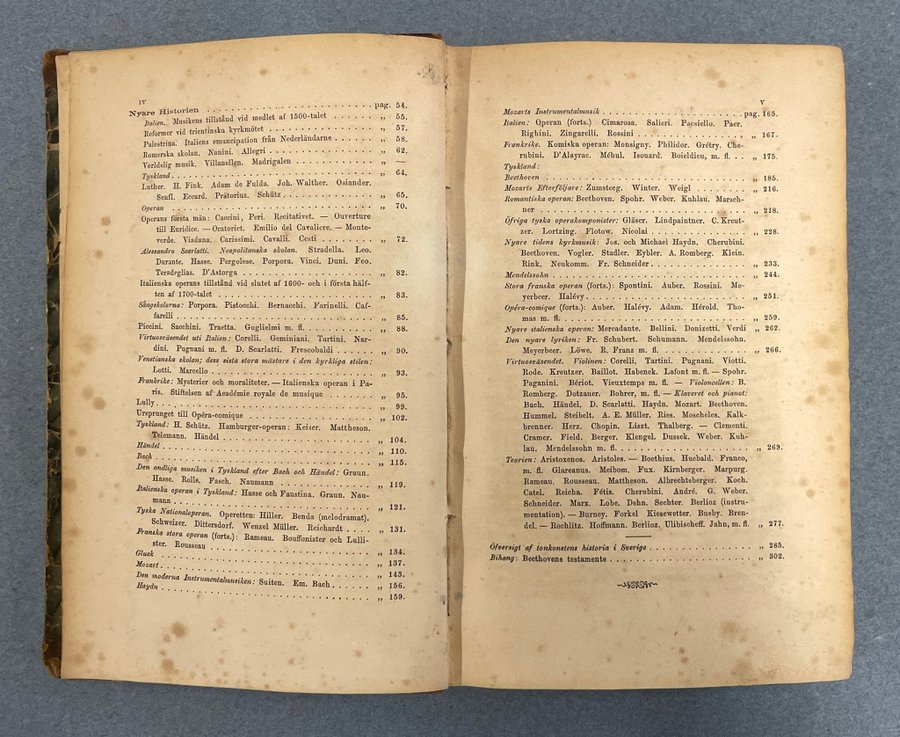 IV
Nyare Historien . . . . . . . . . . pag. 54.
Italien. Musikens tillstånd vid medlet af 1500-talet . . . . . „ 55.
Reformer vid trientinska kyrkmötet . . . . . „ 57.
Palestrina. Italiens emancipation från Nederländarne . . . . . „ 58.
Romerska skolan. Nanini. Allegri . . . . . „ 62.
Verldslig musik. Villanellen. Madrigalen . . . . . „ —
Tyskland . . . . . „ 64.
Luther. H. Fink. Adam de Fulda. Joh. Walther. Osiander.
Senfl. Eccard. Prätorius. Schütz . . . . . „ 65.
Operan . . . . . „ 70.
Operans första män: Caccini, Peri. Recitativet. — Ouverture
till Euridice. — Oratoriet. Emilio del Cavaliere. — Monte-
verde. Viadana. Carissimi. Cavalli. Cesti . . . . . „ 72.
Alessandro Scarlatti. Neapolitanska skolan. Stradella. Leo.
Durante. Hasse. Pergolese. Porpora. Vinci. Duni. Feo.
Teradeglias. D'Astorga . . . . . „ 82.
Italienska operans tillstånd vid slutet af 1600- och i första hälf-
ten af 1700-talet . . . . . „ 83.
Sångskolorna: Porpora. Pistocchi. Bernacchi. Farinelli. Caf-
farelli . . . . . „ 85.
Piccini. Sacchini. Traetta. Guglielmi m. fl. . . . . . „ 88.
Virtuosväsendet uti Italien: Corelli. Geminiani. Tartini. Nar-
dini. Pugnani m. fl. D. Scarlatti. Frescobaldi . . . . . „ 90.
Venetianska skolan; dess sista stora mästare i den kyrkliga stilen:
Lotti. Marcello . . . . . „ 93.
Frankrike: Mysterier och moraliteter. — Italienska operan i Pa-
ris. Stiftelsen af Académie royale de musique . . . . . „ 95.
Lully . . . . . „ 99.
Ursprunget till Opéra-comique . . . . . „ 102.
Tyskland: H. Schütz. Hamburger-operan: Keiser. Mattheson.
Telemann. Händel . . . . . „ 104.
Händel . . . . . „ 110.
Bach . . . . . „ 115.
Den andliga musiken i Tyskland efter Bach och Händel: Graun.
Hasse. Rolle. Fasch. Naumann . . . . . „ 119.
Italienska operan i Tyskland: Hasse och Faustina. Graun. Nau-
mann . . . . . „ 121.
Tyska Nationaloperan. Operetten: Hiller. Benda (melodramat).
Schweizer. Dittersdorf. Wenzel Müller. Reichardt . . . . . „ 131.
Franska stora operan (forts.): Rameau. Bouffonister och Lulli-
ster. Rousseau . . . . . „ 134.
Gluck . . . . . „ 137.
Mozart . . . . . „ 143.
Den moderna Instrumentalmusiken: Suiten. Em. Bach . . . . . „ 156.
Haydn . . . . . „ 159.
V
Mozarts Instrumentalmusik . . . . . pag. 165.
Italien: Operan (forts.) Cimarosa. Salieri. Paesiello. Paer.
Righini. Zingarelli. Rossini . . . . . „ 167.
Frankrike. Komiska operan: Monsigny. Philidor. Grétry. Che-
rubini. D'Alayrac. Méhul. Isouard. Boieldieu, m. fl. . . . „ 175.
Tyskland:
Beethoven . . . . . „ 185.
Mozarts Efterföljare: Zumsteeg. Winter. Weigl . . . . . „ 216.
Romantiska operan: Beethoven. Spohr. Weber. Kuhlau. Marsch-
ner . . . . . „ 218.
Öfriga tyska operakomponister: Gläser. Lindpaintner. C. Kreut-
zer. Lortzing. Flotow. Nicolai . . . . . „ 228.
Nyare tidens kyrkmusik: Jos. och Michael Haydn. Cherubini.
Beethoven. Vogler. Stadler. Eybler. A. Romberg. Klein.
Rink. Neukomm. Fr. Schneider . . . . . „ 233.
Mendelssohn . . . . . „ 244.
Stora franska operan (forts.): Spontini. Auber. Rossini. Me-
yerbeer. Halévy . . . . . „ 251.
Opéra-comique (forts.): Auber. Halévy. Adam. Hérold. Tho-
mas m. fl. . . . . . „ 259.
Nyare italienska operan: Mercadante. Bellini. Donizetti. Verdi „ 262.
Den nyare lyriken: Fr. Schubert. Schumann. Mendelssohn.
Meyerbeer. Löwe. R. Franz m. fl. . . . . . „ 266.
Virtuosväsendet. Violinen: Corelli. Tartini. Pugnani. Viotti.
Rode. Kreutzer. Baillot. Habenek. Lafont m. fl. — Spohr.
Paganini. Bériot. Vieuxtemps m. fl. — Violoncellen: B.
Romberg. Dotzauer. Bohrer, m. fl. — Klaveret och pianot:
Bach. Händel. D. Scarlatti. Haydn. Mozart. Beethoven.
Hummel. Steibelt. A. E. Müller. Ries. Moscheles. Kalk-
brenner. Herz. Chopin. Liszt. Thalberg. — Clementi.
Cramer. Field. Berger. Klengel. Dussek. Weber. Kuh-
lau. Mendelssohn m. fl. . . . . . „ 269.
Teorien: Aristoxenos. Aristoles. — Boethius. Hucbald. Franco,
m. fl. Glareanus. Meibom. Fux. Kirnberger. Marpurg.
Rameau. Rousseau. Mattheson. Albrechtsberger. Koch.
Catel. Reicha. Fétis. Cherubini. André. G. Weber.
Schneider. Marx. Lobe. Dehn. Sechter. Berlioz (instru-
mentation). — Burney. Forkel Kiesewetter. Busby. Bren-
del. — Rochlitz. Hoffmann. Berlioz. Ulibischeff. Jahn, m. fl. „ 277.
Öfversigt af tonkonstens historia i Sverige . . . . . „ 285.
Bihang: Beethovens testamente . . . . . „ 302.